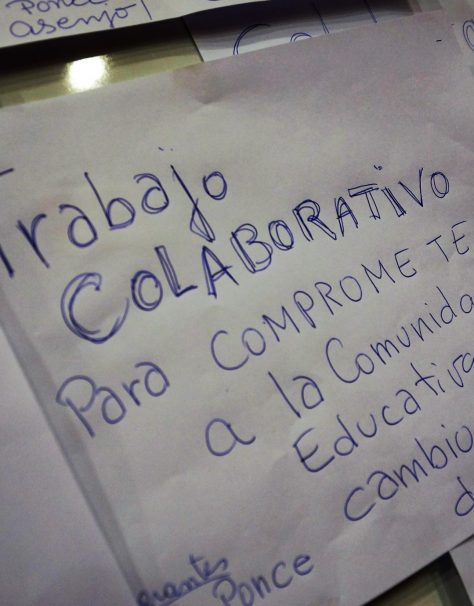 Ponce
asenjo
Trabajo
COLABORATIVO
Para COMPROMETE
a la Comunida
Educativa
cambio
d
Ponce